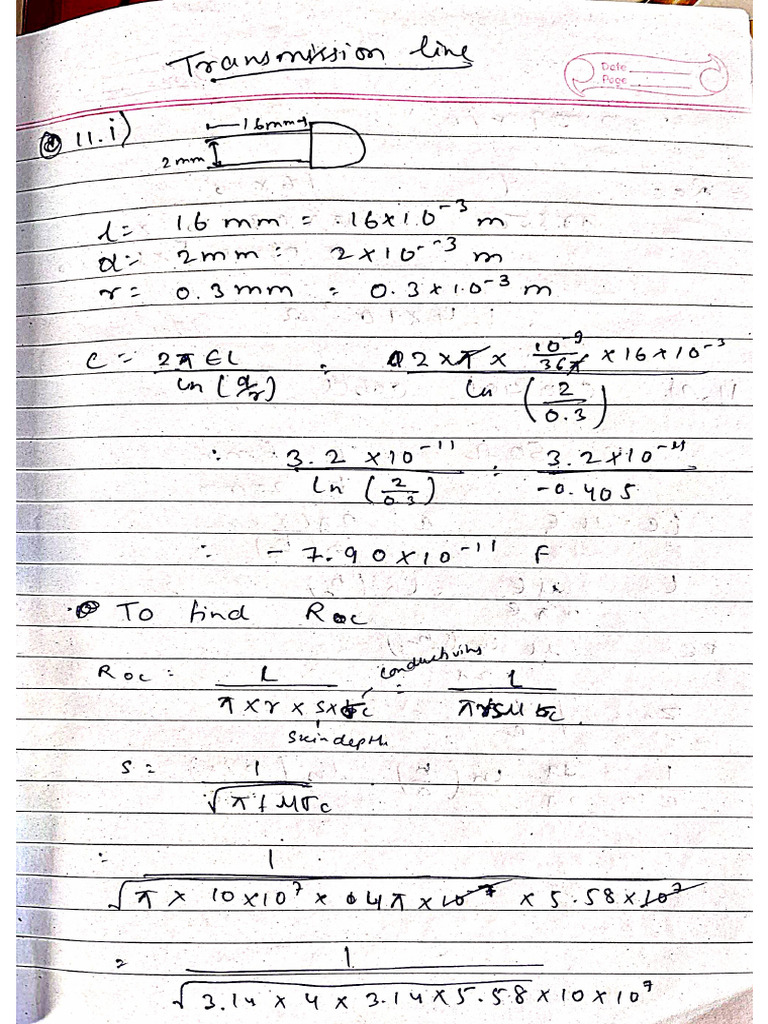 Transmission line
Date
Page
11.i)
16mm
2mm
l = 16 mm = 16×10⁻³ m
d = 2mm = 2×10⁻³ m
r = 0.3mm = 0.3×10⁻³ m
C = 2πЄL / ln(d/r) = 2×π× 10⁻⁹/36π ×16×10⁻³ / ln(2/0.3)
= 3.2 ×10⁻¹¹ / ln(2/0.3) = 3.2×10⁻¹¹ / -0.405
= -7.90×10⁻¹¹ F
To find Roc
Roc = L / π×r×s×σc = L / πrsμσc
conductivity
skindepth
s = 1 / √πfμσc
= 1 / √π × 10×10⁷ × 4π×10⁻⁷ × 5.58×10⁷
= 1 / √3.14 × 4 × 3.14×5.58×10×10⁷